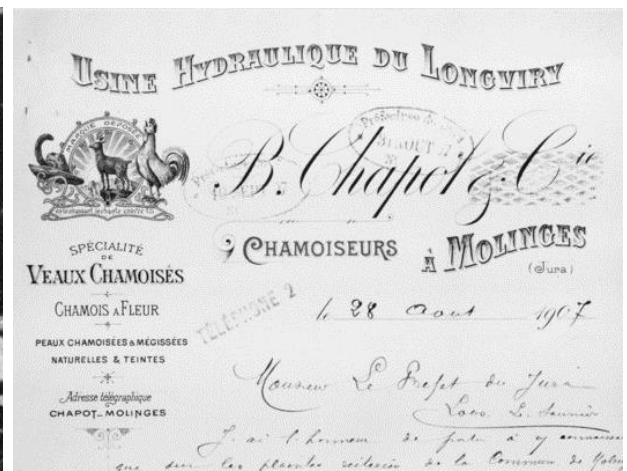 USINE HYDRAULIQUE DU LONGVIRY
MARQUE DÉPOSÉE
Préfecture du Jura
31 AOUT 07
B. Chapot & Cie
CHAMOISEURS À MOLINGES
(Jura)
SPÉCIALITÉ
DE
VEAUX CHAMOISÉS
CHAMOIS A FLEUR
PEAUX CHAMOISÉES & MÉGISSÉES
NATURELLES & TEINTES
Adresse télégraphique
CHAPOT-MOLINGES
TÉLÉPHONE 2
le 28 Aout 1907
Monsieur Le Prefet du Jura
Lons L. Saunier
J'ai l'honneur de porter à
que sur les plaintes de la Commune de